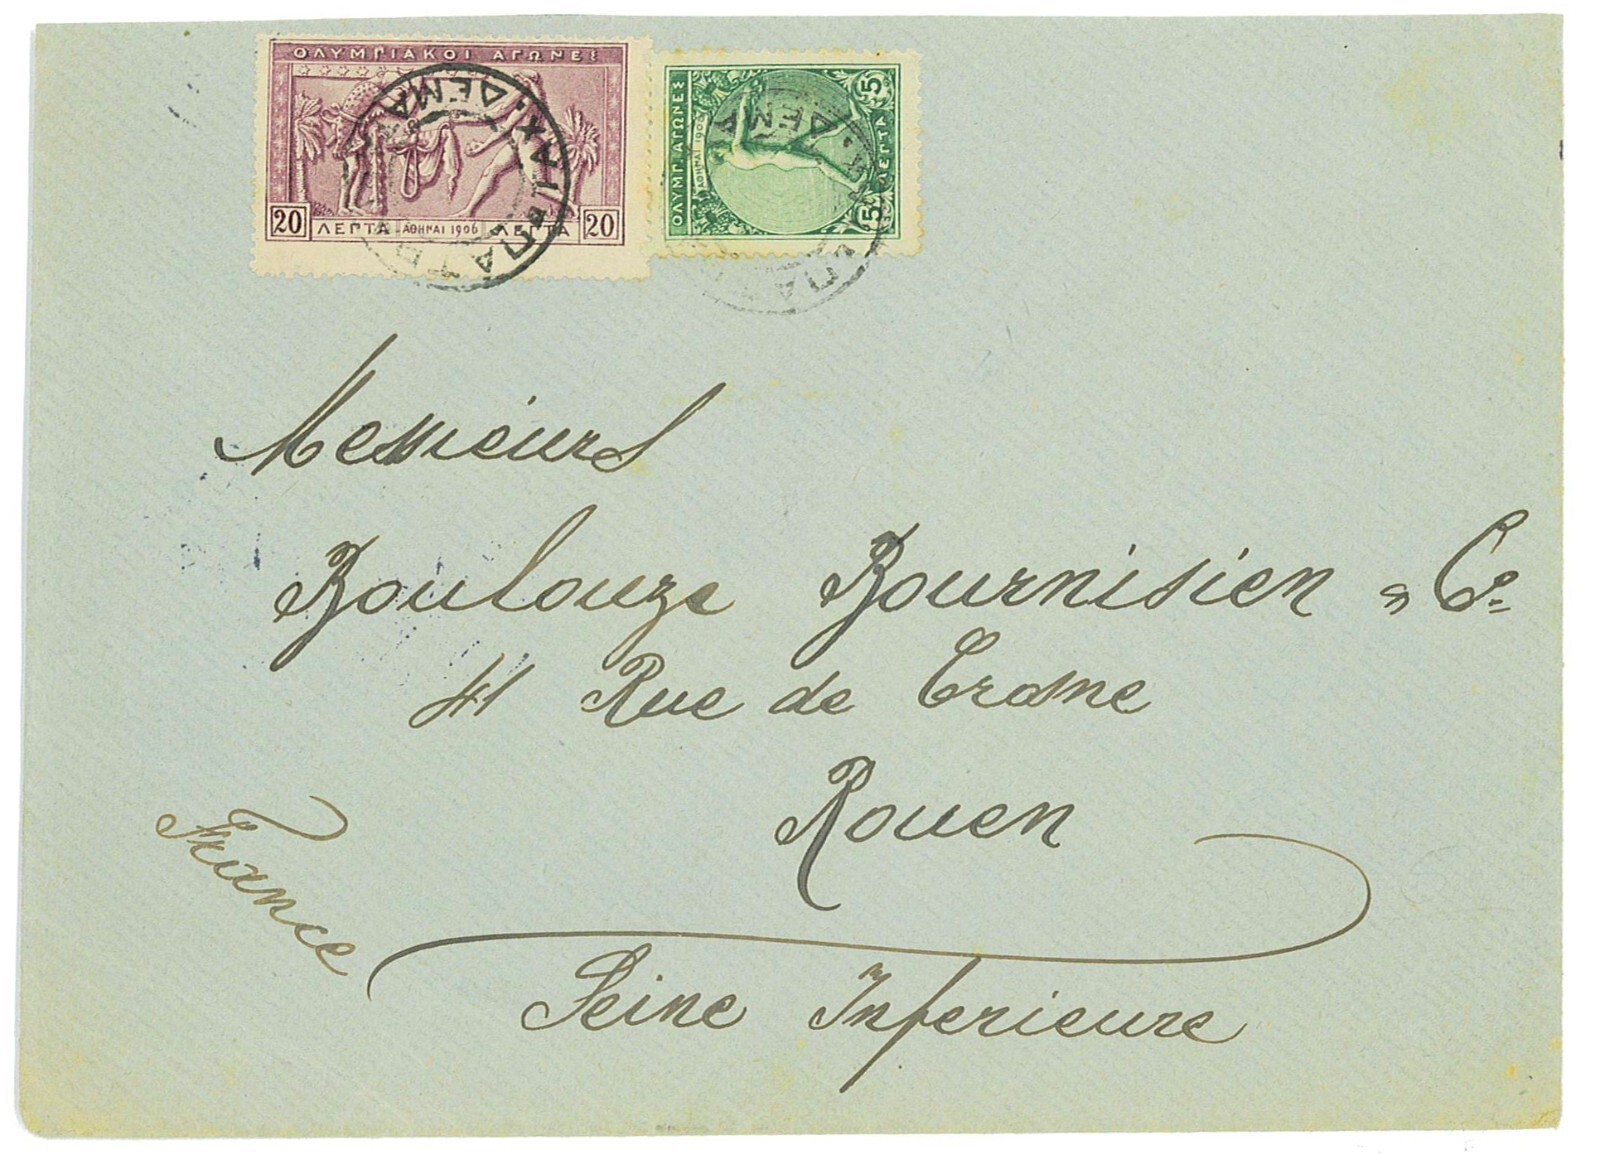 ΟΛΥΜΠΙΑΚΟΙ ΑΓΩΝΕΣ
20 ΛΕΠΤΑ ΑΘΗΝΑΙ 1906 ΛΕΠΤΑ 20
ΟΛΥΜΠ. ΑΓΩΝΕΣ
ΑΘΗΝΑΙ 1906
5 ΛΕΠΤΑ 5
ΤΑΧ. ΔΕΜΑ
ΔΕΜΑ
Messieurs
Boulouze Bournisien & Ce
41 Rue de Crosne
Rouen
France
Seine Inferieure